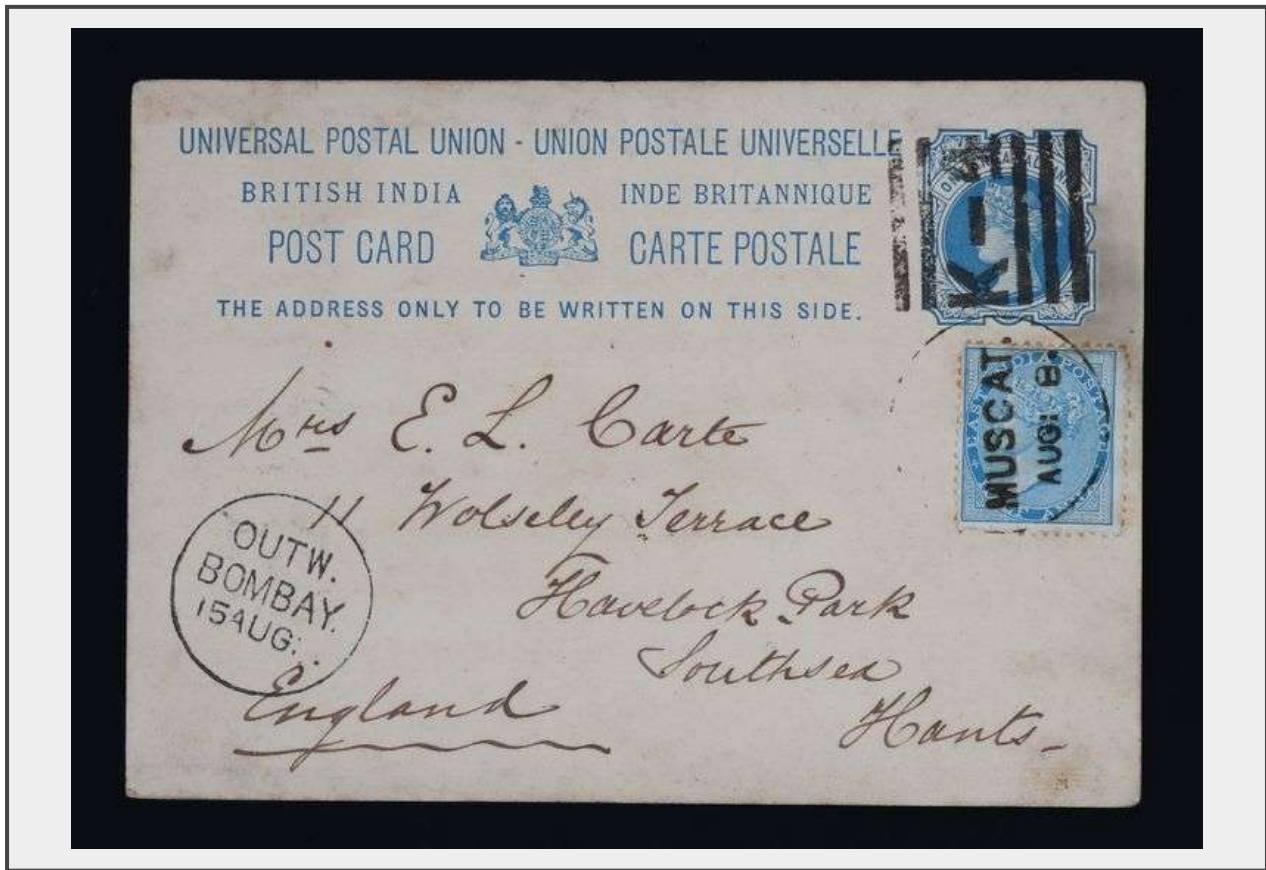 UNIVERSAL POSTAL UNION - UNION POSTALE UNIVERSELLE
BRITISH INDIA INDE BRITANNIQUE
POST CARD CARTE POSTALE
THE ADDRESS ONLY TO BE WRITTEN ON THIS SIDE.
K-4
MUSCAT
AUG: 8
Mrs E. L. Carte
11 Wolseley Terrace
Havelock Park
Southsea
Hants-
England
OUTW.
BOMBAY.
15 AUG: